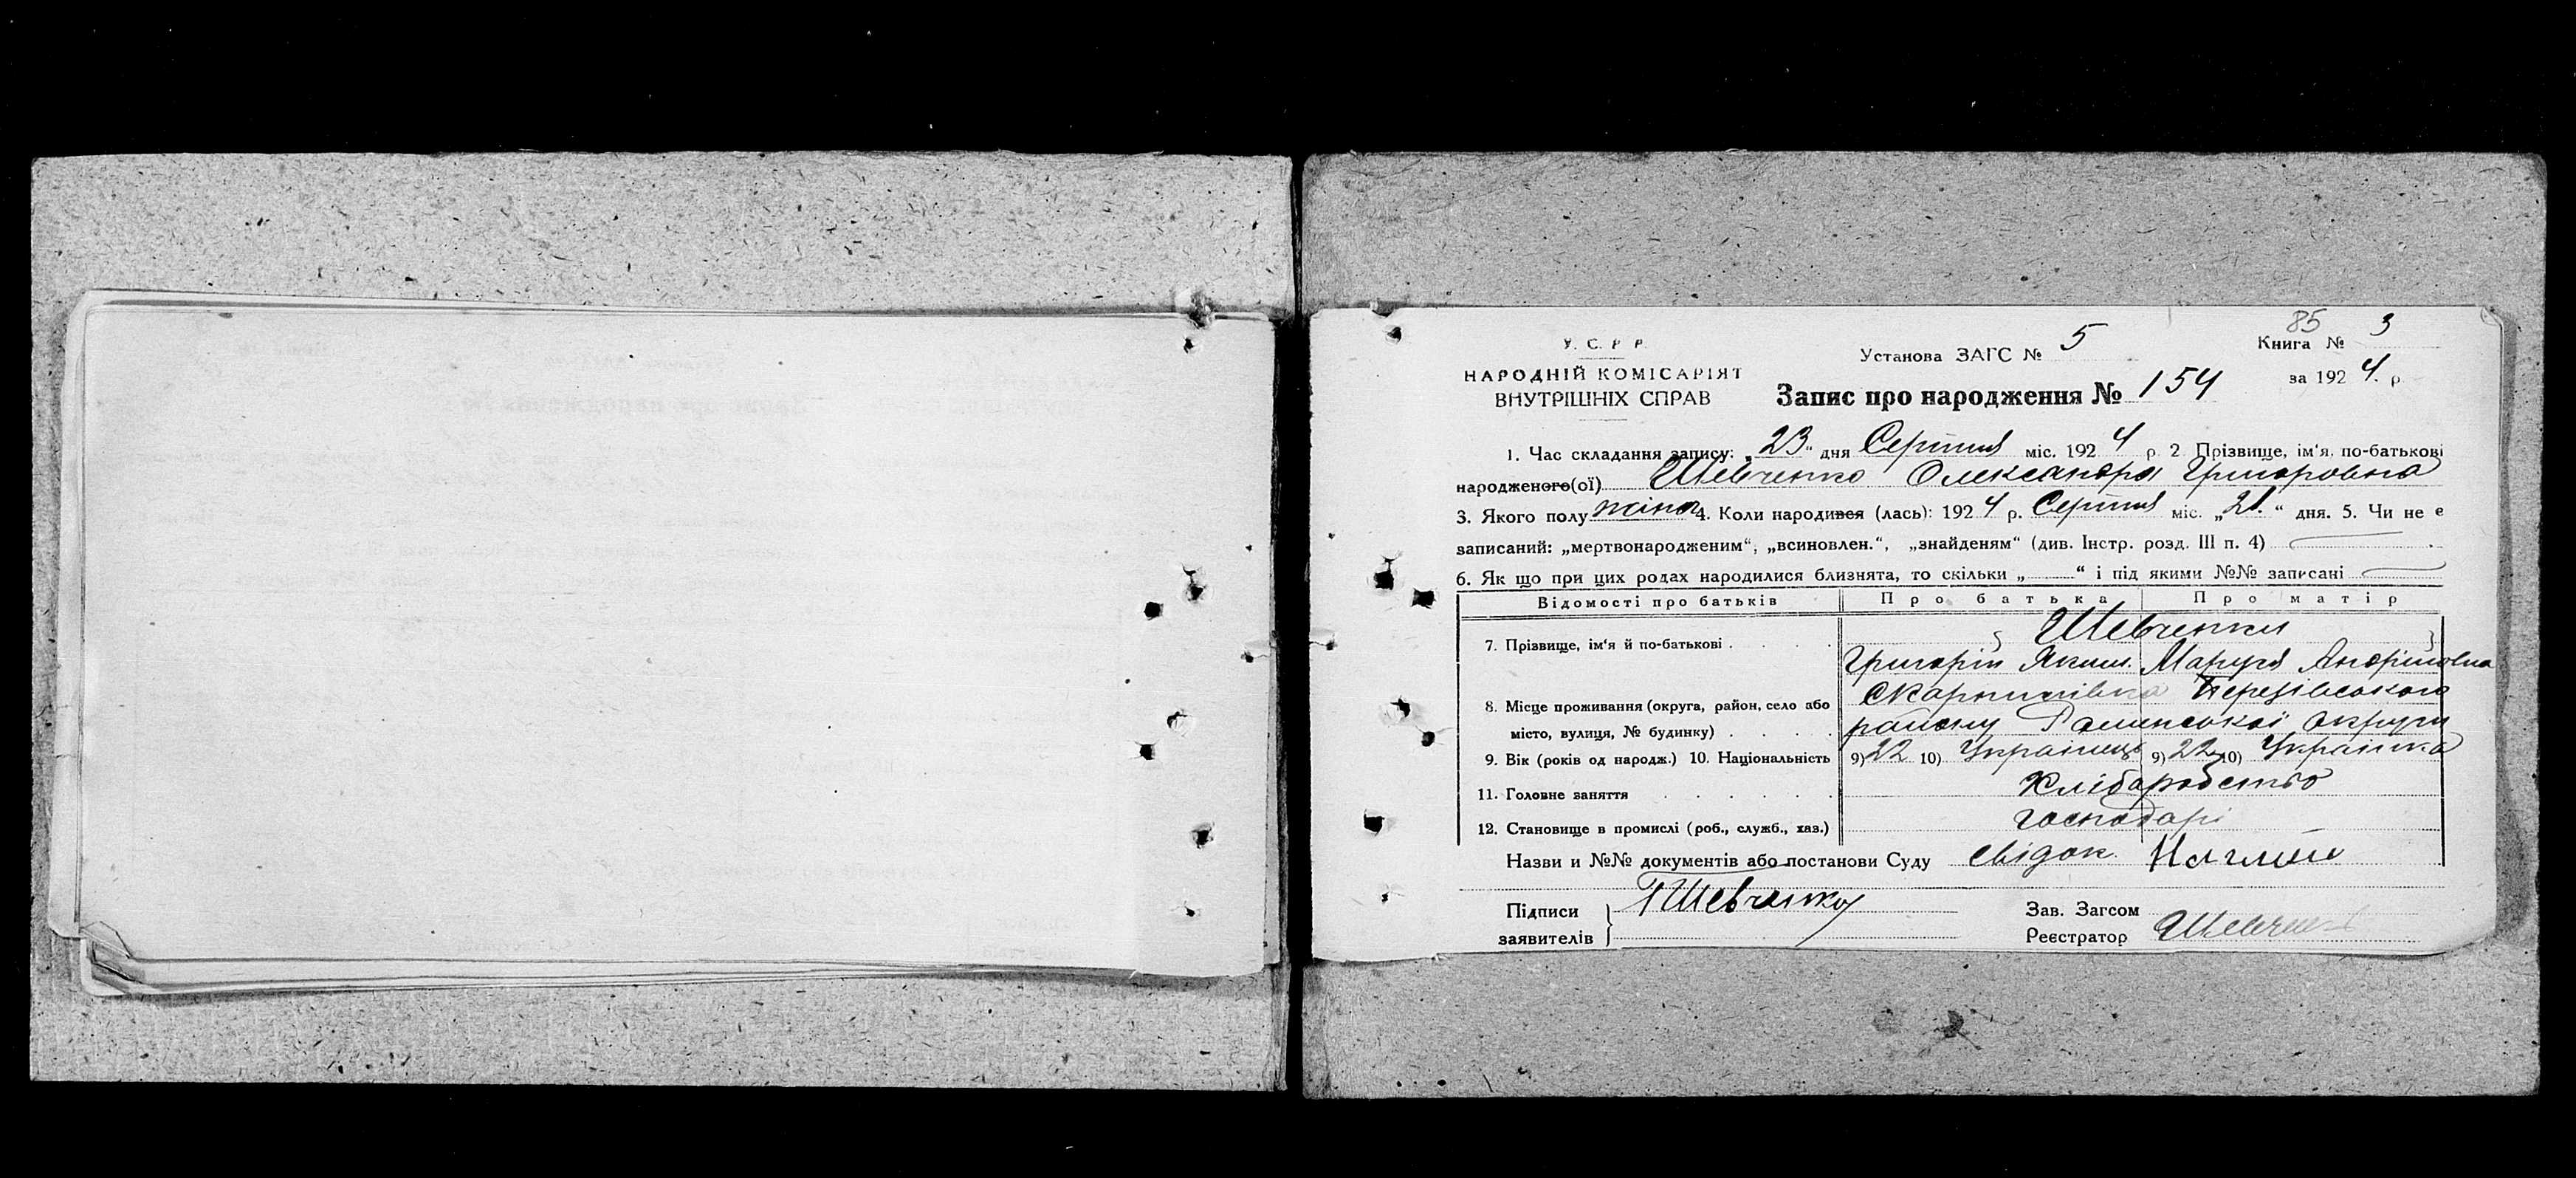 85
У. С. Р. Р.
Установа ЗАГС № 5
Книга № 3
НАРОДНІЙ КОМІСАРІЯТ
ВНУТРІШНІХ СПРАВ
Запис про народження № 154
за 1924. р.
1. Час складання запису: „23“ дня Серпня міс. 1924 р. 2 Прізвище, ім'я, по-батькові
народженого(ої) Шевченко Олександра Григоровна
3. Якого полу жіноч 4. Коли народився (лась): 1924 р. Серпня міс. „21.“ дня. 5. Чи не є
записаний: „мертвонародженим“, „всиновлен.“, „знайденям“ (див. Інстр. розд. III п. 4)
6. Як що при цих родах народилися близнята, то скільки „ “ і під якими №№ записані
Відомості про батьків Про батька Про матір
Шевченки
7. Прізвище, ім'я й по-батькові
Григорій Яким. Маруся Андріїовна
8. Місце проживання (округа, район, село або
місто, вулиця, № будинку)
району Роменської округи
9. Вік (років од народж.) 10. Національність 9) 22 10) Українець 9) 22 10) Українка
11. Головне заняття Хліборобство
12. Становище в промислі (роб., служб., хаз.) господарі
Назви и №№ документів або постанови Суду свідок.
Підписи
заявителів
Г Шевченко
Зав. Загсом
Реєстратор